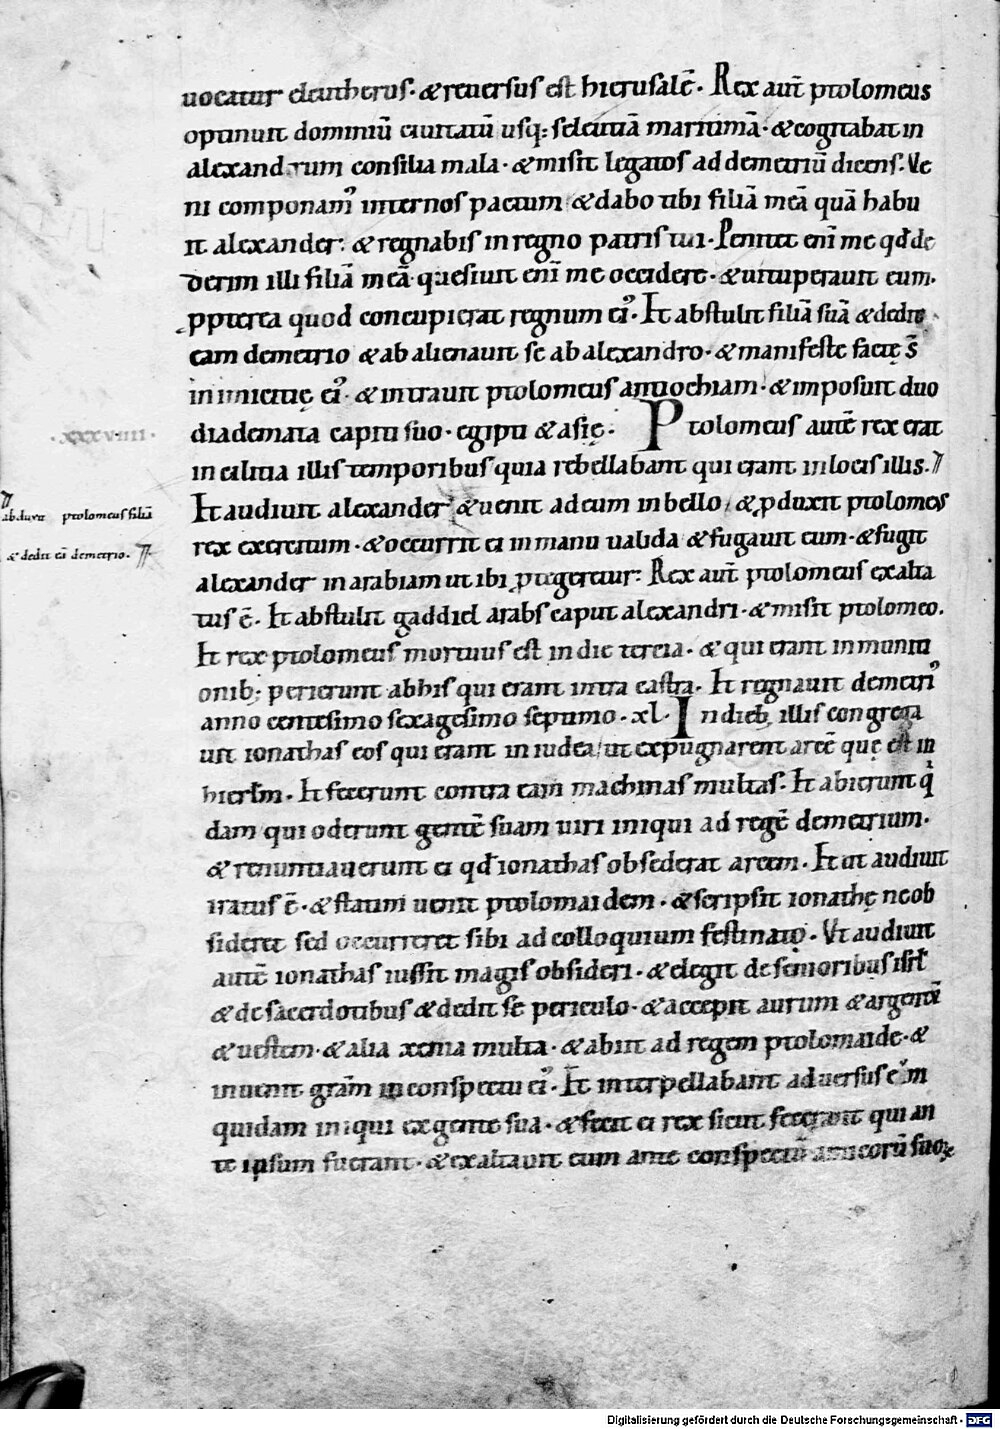 uocatur eleutherus · & reuersus est hierusalē · Rex aut̄ ptolomeus
optinuit dominiū ciuitatū usq; seleutiā maritimā · & cogitabat in
alexandrum consilia mala · & misit legatos ad demetriū dicens · Ve
ni componam᾽ inter nos pactum & dabo tibi filiā meā quā habu
it alexander : & regnabis in regno patris tui · Penitet enī me qd̄ de
derim illi filiā meā · quesiuit enī me occidere · & uituperauit eum ·
ppterea quod concupierat regnum ei᾽ · Et abstulit filiā suā & dedit
eam demetrio & ab alienauit se ab alexandro · & manifeste factę s̄
inimicitię ei᾽ · & intrauit ptolomeus antiochiam · & imposuit duo
diademata capiti suo · egipti & asię · Ptolomeus autē rex erat
·xxxviiii·
in cilitia illis temporibus quia rebellabant qui erant in locis illis ·
Et audiuit alexander & uenit ad eum in bello · & pduxit ptolomeus
ab ptolomeus filiā
rex exercitum · & occurrit ei in manu ualida & fugauit eum · & fugit
& dedit eā demetrio ·
alexander in arabiam ut ibi ptegeretur : Rex aut̄ ptolomeus exalta
tus ē · Et abstulit gaddiel arabs caput alexandri · & misit ptolomeo ·
Et rex ptolomeus mortuus est in die tercia · & qui erant in muniti
onib; perierunt ab his qui erant intra castra · Et regnauit demetri᾽
anno centesimo sexagesimo septimo · xl · In dieb; illis congrega
uit ionathas eos qui erant in iudea / ut expugnarent arcē quę est in
hierl̄m · Et fecerunt contra eam machinas multas · Et abierunt q
dam qui oderunt gentē suam uiri iniqui ad regē demetrium ·
& renuntiauerunt ei qd̄ ionathas obsederat arcem · Et ut audiuit
iratus ē · & statim uenit ptolomaidem · & scripsit ionathę ne ob
sideret sed occurreret sibi ad colloquium festinato · Vt audiuit
autē ionathas iussit magis obsideri · & elegit de senioribus isrl̄
& de sacerdotibus & dedit se periculo · & accepit aurum & argentū
& uestem · & alia xenia multa · & abiit ad regem ptolomaide · &
inuenit grām in conspectu ei᾽ · Et interpellabant aduersus eum
quidam iniqui ex gente sua · & fecit ei rex sicut fecerant qui an
te ipsum fuerant · & exaltauit eum ante conspectū amicorū suoꝝ
Digitalisierung gefördert durch die Deutsche Forschungsgemeinschaft · DFG